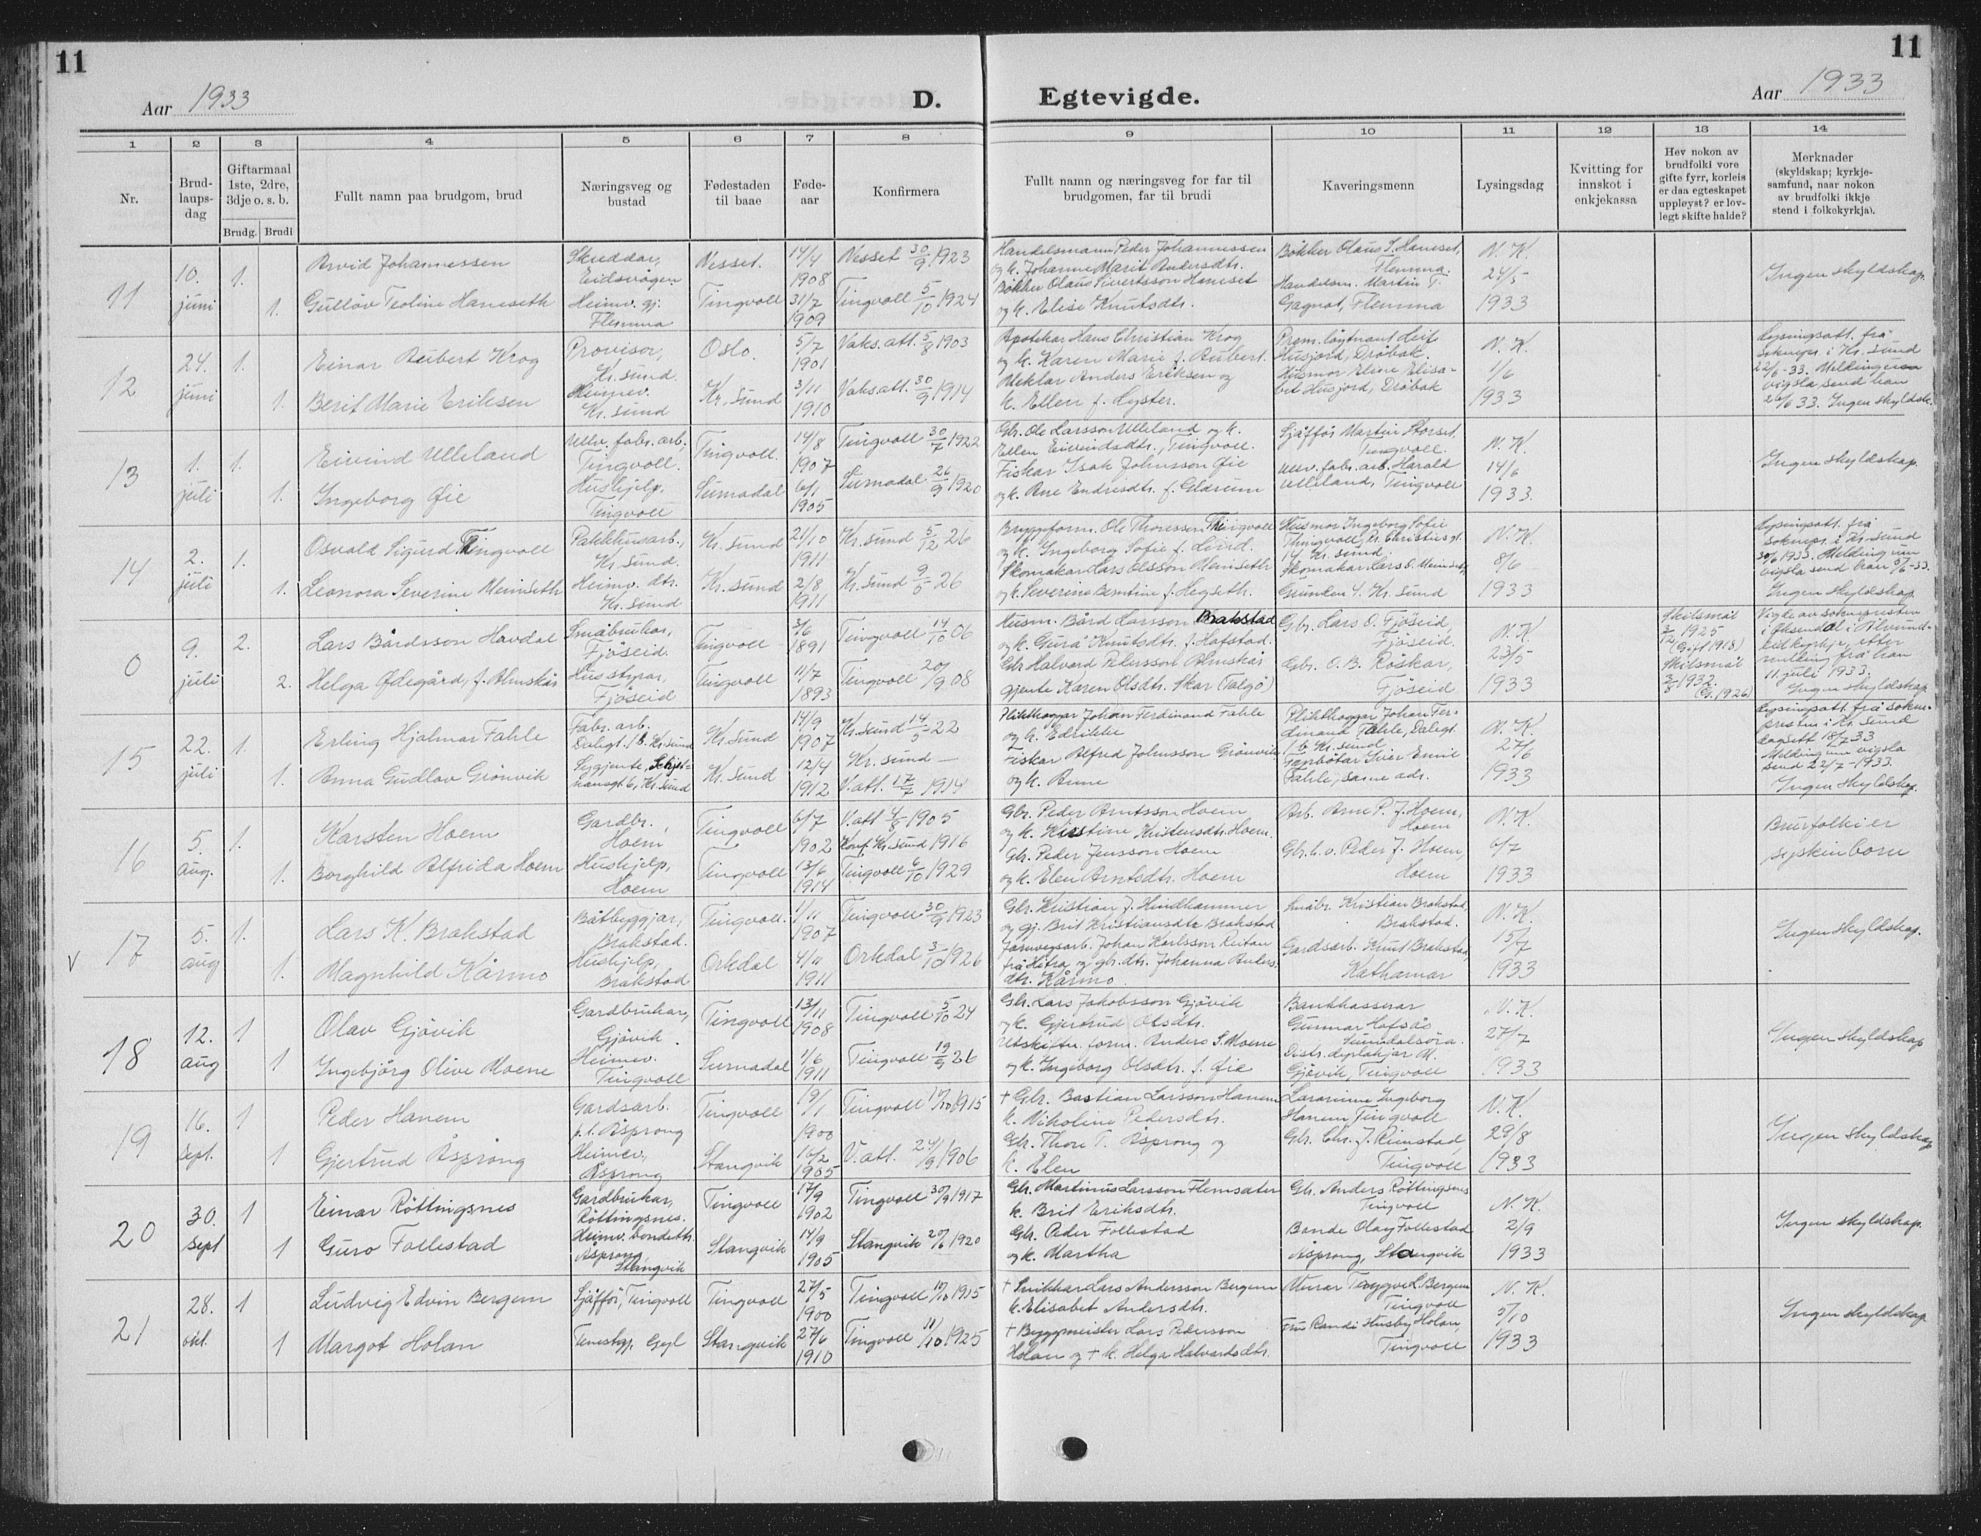 11
11
Aar 1933
D.
Egtevigde.
Aar 1933
1 2 3 4 5 6 7 8 9 10 11 12 13 14
Nr.
Brud-
laups-
dag
Giftarmaal
1ste, 2dre,
3dje o. s. b.
Brudg. Brudi
Fullt namn paa brudgom, brud
Næringsveg og
bustad
Fødestaden
til baae
Føde-
aar
Konfirmera
Fullt namn og næringsveg for far til
brudgomen, far til brudi
Kaveringsmenn
Lysingsdag
Kvitting for
innskot i
enkjekassa
Hev nokon av
brudfolki vore
gifte fyrr, korleis
er daa egteskapet
uppløyst? er lov-
legt skifte halde?
Merknader
(skyldskap; kyrkje-
samfund, naar nokon
av brudfolki ikkje
stend i folkekyrkja).
11
10.
juni
1.
1.
Arvid Johannessen
Gulløv Teoline Haneseth
Skreddar,
Eidsvågen
Heimv. gj.
Flemma
Nesset.
Tingvoll
14/4
1908
31/7
1909
Nesset 30/9 1923
Tingvoll 5/10 1924
Handelsmann Peder Johannessen
og k. Johanne Marit Andersdtr.
Bökker Olaus Sivertsson Haneset
og k. Elise Knutsdtr.
Bökker Olaus S. Haneset,
Flemma.
Handelsm. Martin T.
Gagnat, Flemma
N. K.
24/5
1933
Ingen skyldskap.
12
24.
juni
1.
1.
Einar Rubert Krog
Berit Marie Eriksen
Provisor,
Kr. sund.
Heimev.
Kr. sund
Oslo.
Kr. sund
5/7
1901
3/11
1910
Vaks. att. 5/8 1903
Vaks. att. 30/9 1914
Apotekar Hans Christian Krog
og k. Karen Marie f. Rubert.
Meklar Anders Eriksen og
k. Ellen f. Lyster.
Prem. løytnant Leif
Husjord, Drøbak.
Husmor Eline Elisa-
bet Husjord, Drøbak
N. K.
1/6
1933
Lysingsatt. frå
soknepr. i Kr. sund
22/6-33. Melding om
vigsla send han
26/6 33. Ingen skyldsk.
13
1.
juli
1.
1.
Eivind Ulleland
Ingeborg Øie
Ullv. fabr. arb.,
Tingvoll.
Hushjelp,
Tingvoll
Tingvoll.
Surnadal
14/8
1907
6/1
1905
Tingvoll 30/7 1922
Surnadal 26/9 1920
Gbr. Ole Larsson Ulleland og k.
Ellen Eivindsdtr., Tingvoll.
Fiskar Isak Johnsson Øie
og k. Ane Endresdtr. f. Glærum
Sjåffør Martin Storset,
Tingvoll.
Ullv. fabr. arb. Harald
Ulleland, Tingvoll
N. K.
14/6
1933.
Ingen skyldskap.
14
2.
juli
1.
1.
Osvald Sigurd Thingvoll
Leonora Severine Meinseth
Pakkhusarb.,
Kr. sund.
Heimv. dtr.
Kr. sund
Kr. sund
Kr. sund
21/10
1911
2/8
1911
Kr. sund 5/12 26
Kr. sund 9/5 26
Bryggeform. Ole Thoressen Thingvoll
og k. Ingeborg Sofie f. Lind.
Skomakar Lars Olsson Meinseth
og k. Severine Berntine f. Hegseth.
Husmor Ingeborg Sofie
Thingvoll, Dr. Christies gt.
14 Kr. sund.
Skomakar Lars O. Meinseth,
Grunden 4. Kr. sund
N. K.
8/6
1933
Lysingsatt. frå
soknepr. i Kr. sund
30/6 1933. Melding um
vigsla send han 5/7-33.
Ingen skyldskap
0
9.
juli
2.
2.
Lars Bårdsson Havdal
Helga Ødegård, f. Almskår
Småbrukar,
Fjöseid.
Hus styrar,
Fjöseid
Tingvoll
Tingvoll
3/6
1891
11/7
1893
Tingvoll 14/10 06
Tingvoll 20/9 08
Husm. Bård Larsson Brakstad
og k. Gurå Knutsdtr. f. Hafstad.
Gbr. Halvard Pedersson Almskår
gjente Karen Olsdtr. Skar (Talgö)
Gbr. Lars O. Fjöseid,
Fjöseid.
Gbr. O. B. Roskar,
Fjöseid
N. K.
23/5
1933
Skilsmål
3/12 1925
(Gift 1918)
Skilsmål
3/8 1932.
(G. 1926)
Vigde av soknepresten
i Øksendal i Ålvund-
eid kyrkje, etter
melding frå han
11. juli 1933.
Ingen skyldskap
15
22.
juli
1.
1.
Erling Hjalmar Fahle
Anna Gudlov Grönvik
Fabr. arb.
Dalegt. 1 b. Kr. sund
Sygjente,
6, Kr. sund
Kr. sund
Kr. sund
14/9
1907
12/4
1912
Kr. sund 14/5 22
Kr. sund —
V. att. 17/7 1914
Plikthoggar Johan Ferdinand Fahle
og k. Edlikke
Fiskar Alfred Johnsson Grönvik
og k. Anne
Plikthoggar Johan Fer-
dinand Fahle, Dalegt.
1 b Kr. sund
Iver Emil
Fahle, same adr.
N. K.
27/6
1933
Lysingsatt. frå sokne-
presten i Kr. sund
dagsett 18/7 33
Melding um vigsla
send 22/7-1933.
Ingen skyldskap.
16
5.
aug.
1.
1.
Karsten Hoem
Borghild Alfrida Hoem
Gardbr.,
Hoem
Hushjelp,
Hoem
Tingvoll
Tingvoll
6/7
1902
13/6
1914
V. att 4/8 1905
Konf. Kr. sund 1916
Tingvoll 6/10 1929
Gbr. Peder Arntsson Hoem
og k. Kirstine Kristensdtr. Hoem.
Gbr. Peder Jensson Hoem
og k. Elen Arntsdtr. Hoem
Arb. Arne P. J. Hoem,
Hoem
Gbr. h. v. Peder J. Hoem,
Hoem
N. K.
6/7
1933
Brurfolki er
syskinborn
V
17
5.
aug
1.
1.
Lars K. Brakstad
Magnhild Kårmo
Båtbyggjar,
Brakstad.
Hushjelp,
Brakstad
Tingvoll.
Orkdal
1/11
1907
4/11
1911
Tingvoll 30/9 1923
Orkdal 3/10 1926
Gbr. Kristian J. Hindhammer
og gj. Brit Kristiansdtr Brakstad
Jarnvegsarb. Johan Karlsson Reitan
frå Hitra og gbr. dtr. Johanna Anders-
dtr. Kårmo.
Småbr. Kristian Brakstad,
Brakstad.
Gardsarb. Knut Brakstad
Kathamar
N. K.
15/7
1933
Ingen skyldskap.
18
12.
aug
1
1
Olav Gjövik
Ingebjörg Olive Moene
Gardbrukar,
Gjövik.
Heimev.
Tingvoll
Tingvoll
Surnadal
13/11
1908
1/6
1911
Tingvoll 5/10 24
Tingvoll 19/9 26
Gbr. Lars Jakobsson Gjövik
og k. Gjertrud Olsdtr.
Utskiftn. form. Anders S. Moene
og k. Ingeborg Olsdtr. f. Øie
Bankkasserar
Gunnar Hafsås
Sunndalsöra.
Distr. dyrlækjar M.
Gjövik, Tingvoll
N. K.
27/7
1933
Ingen skyldskap
19
16.
sept.
1
1
Peder Hanem
Gjertrud Åsprong
Gardsarb.
p.t. Åsprong
Heimev,
Åsprong
Tingvoll
Stangvik
19/1
1900
16/2
1905
Tingvoll 17/10 1915
V. att. 24/9 1906
+ Gbr. Bastian Larsson Hanem
k. Nikoline Pedersdtr.
Gbr. Thore T. Åsprong og
k. Elen
Lararinne Ingeborg
Hanem Tingvoll
Gbr. Chr. J. Rimstad,
Tingvoll
N. K.
29/8
1933
Ingen skyldskap
20
30.
sept
1
1
Einar Röttingsnes
Guro Follestad
Gardbrukar,
Röttingsnes.
Heimv. bondedtr.
Åsprong,
Stangvik
Tingvoll
Stangvik
17/9
1902
14/9
1905
Tingvoll 30/9 1917
Stangvik 20/6 1920
Gbr. Martinus Larsson Flemsæter
k. Brit Eriksdtr.
Gbr. Peder Follestad
og k. Martha
Gbr. Anders Röttingsnes
Tingvoll
Bonde Olav Follestad
Åsprong, Stangvik
N. K.
2/9
1933
Ingen skyldskap.
21
28.
okt.
1
1
Ludvig Edvin Bergem
Margot Holan
Sjåffør, Tingvoll
Tenestgj. Gyl
Tingvoll
Stangvik
27/5
1900
27/6
1910
Tingvoll 17/10 1915
Tingvoll 11/10 1925
+ Snikkar Lars Andersson Bergem
k. Elisabet Andersdtr.
+ Byggmeister Lars Pedersson
Holan og + k. Helga Halvardsdtr.
Murar Tryggve L. Bergem
Tingvoll
Fru Randi Husby Holan,
Tingvoll
N. K.
5/10
1933
Ingen skyldskap